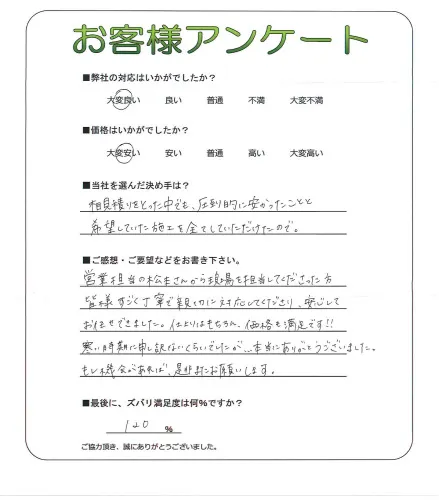 お客様アンケート
■弊社の対応はいかがでしたか?
大変良い 良い 普通 不満 大変不満
■価格はいかがでしたか?
大変安い 安い 普通 高い 大変高い
■当社を選んだ決め手は?
相見積りをとった中でも、圧倒的に安かったことと
希望していた施工を全てしていただけたので。
■ご感想・ご要望などをお書き下さい。
営業担当の松本さんから現場を担当してくださった方
皆様すごく丁寧で親切に対応してくださり、安心して
お任せできました。仕上りはもちろん、価格も満足です!!
寒い時期に申し訳ないくらいでしたが…本当にありがとうございました。
もし機会があれば、是非またお願いします。
■最後に、ズバリ満足度は何%ですか?
120 %
ご協力頂き、誠にありがとうございました。